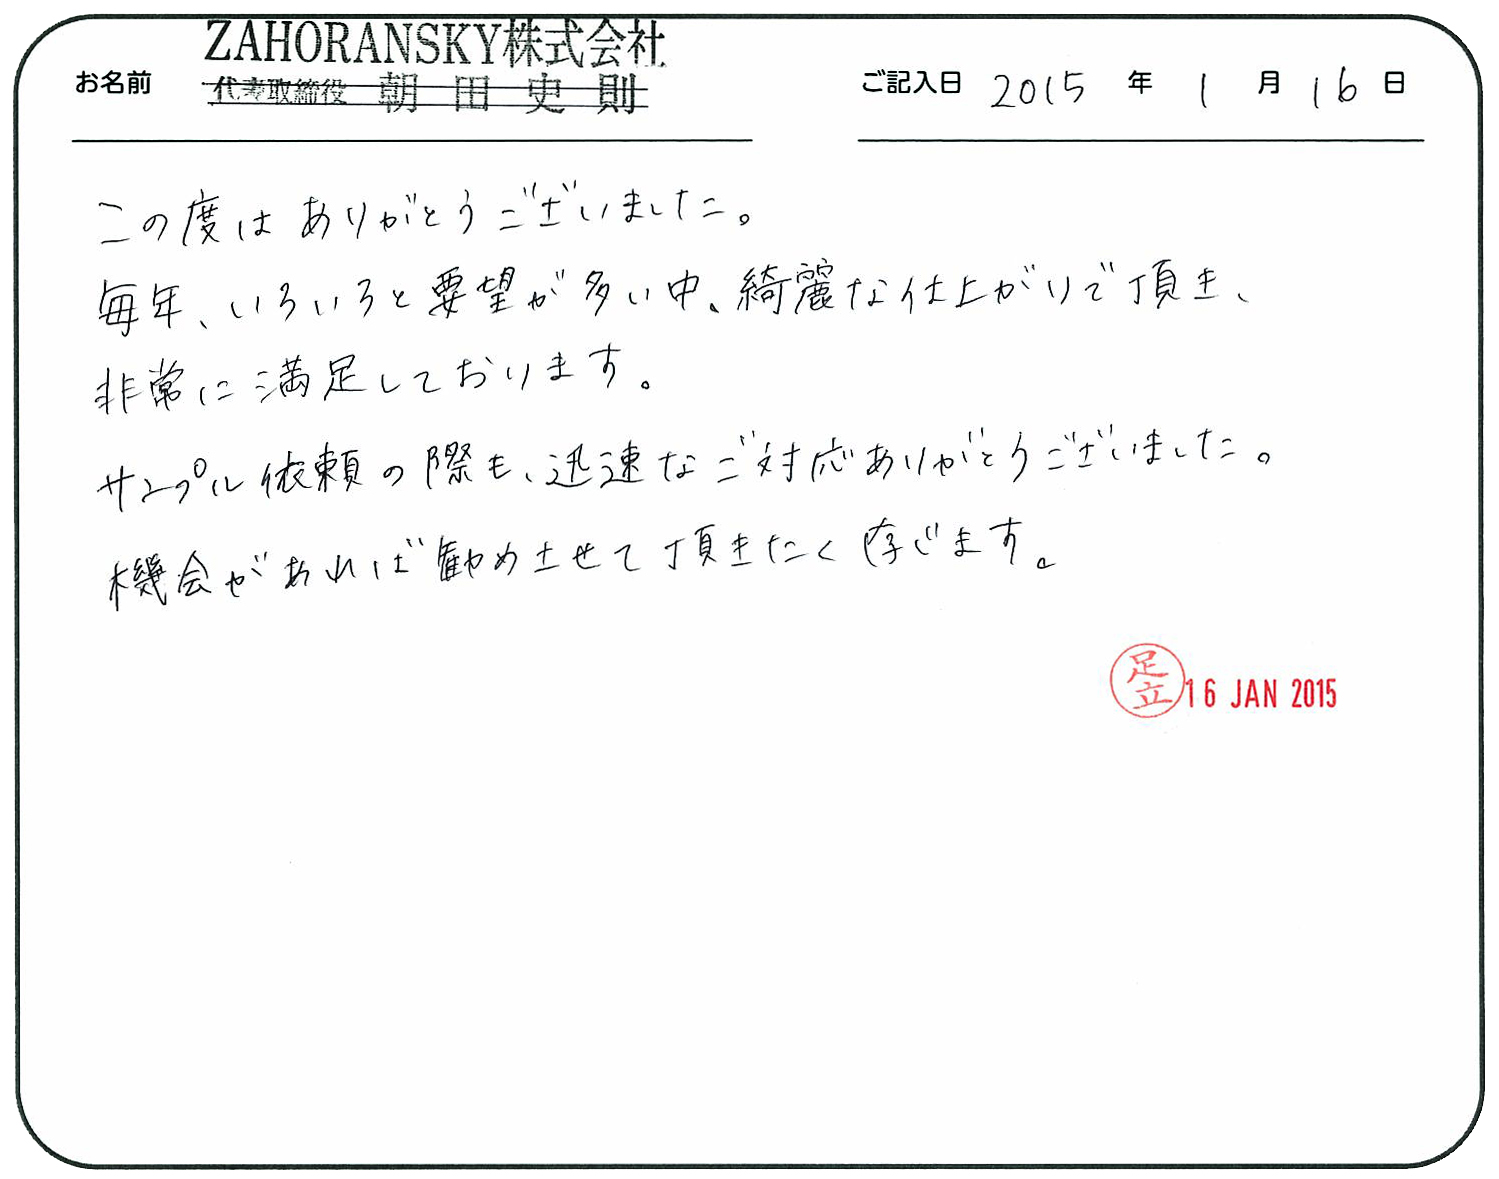 ZAHORANSKY株式会社
お名前 代表取締役 朝田史則
ご記入日 2015 年 1 月 16 日
この度はありがとうございました。
毎年、いろいろと要望が多い中、綺麗な仕上がりで頂き、
非常に満足しております。
サンプル依頼の際も、迅速なご対応ありがとうございました。
機会があれば勧めさせて頂きたく存じます。
足立 16 JAN 2015